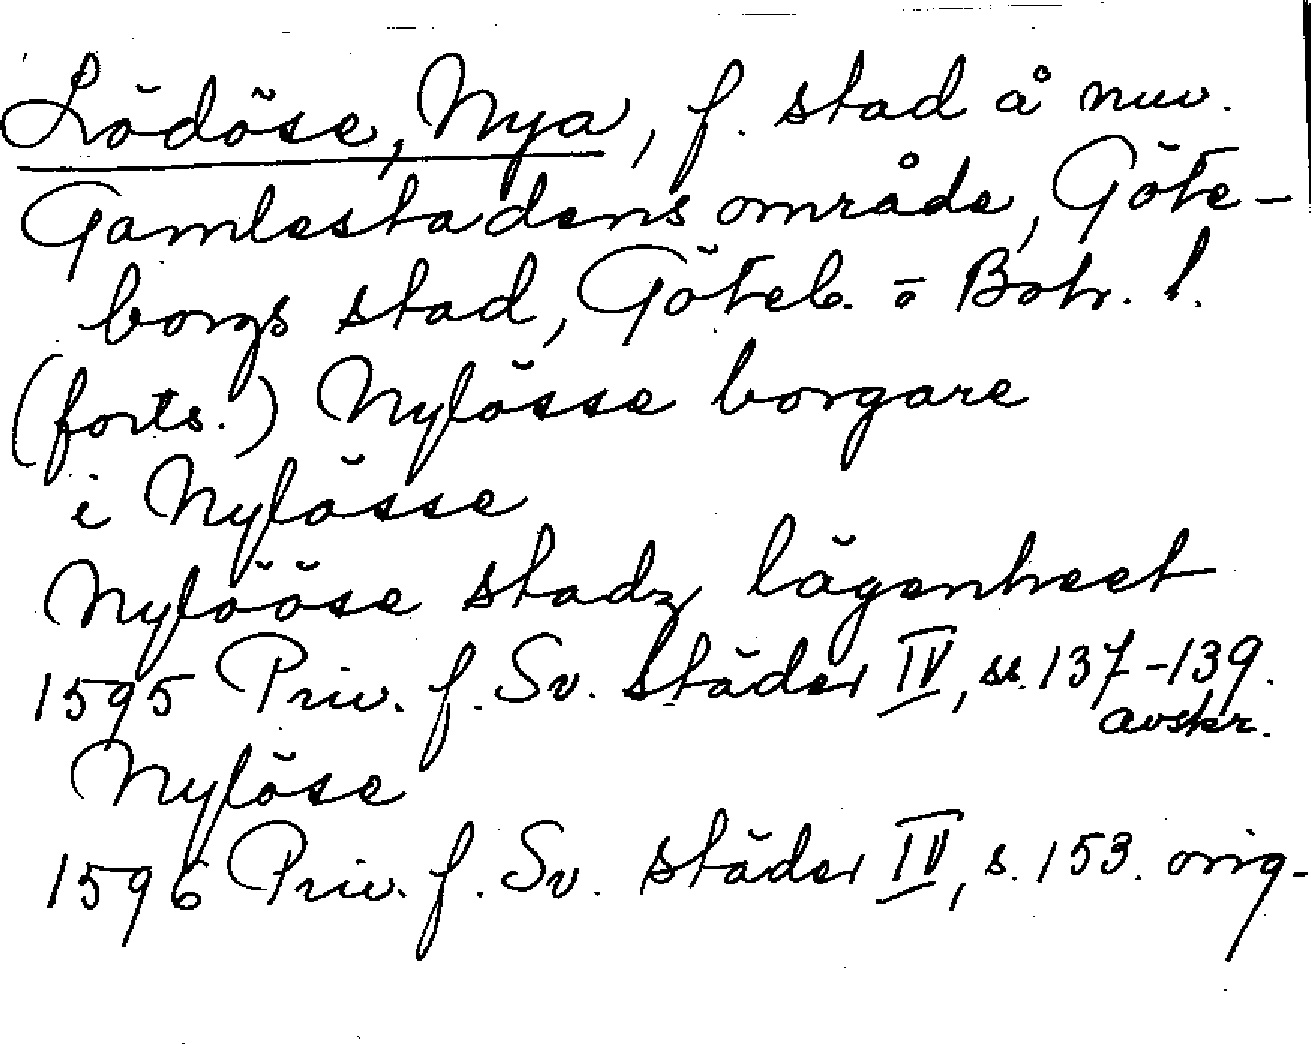 Lödöse, Nya, f. stad å nuv.
Gamlestadens område, Göte-
borgs stad, Göteb. o Boh. l.
(forts.) Nylösse borgare
i Nylösse
Nylööse stadz lägenheet
1595 Priv. f. Sv. städer IV, ss. 137-139.
avskr.
Nylöse
1596 Priv. f. Sv. städer IV, s. 153. orig.